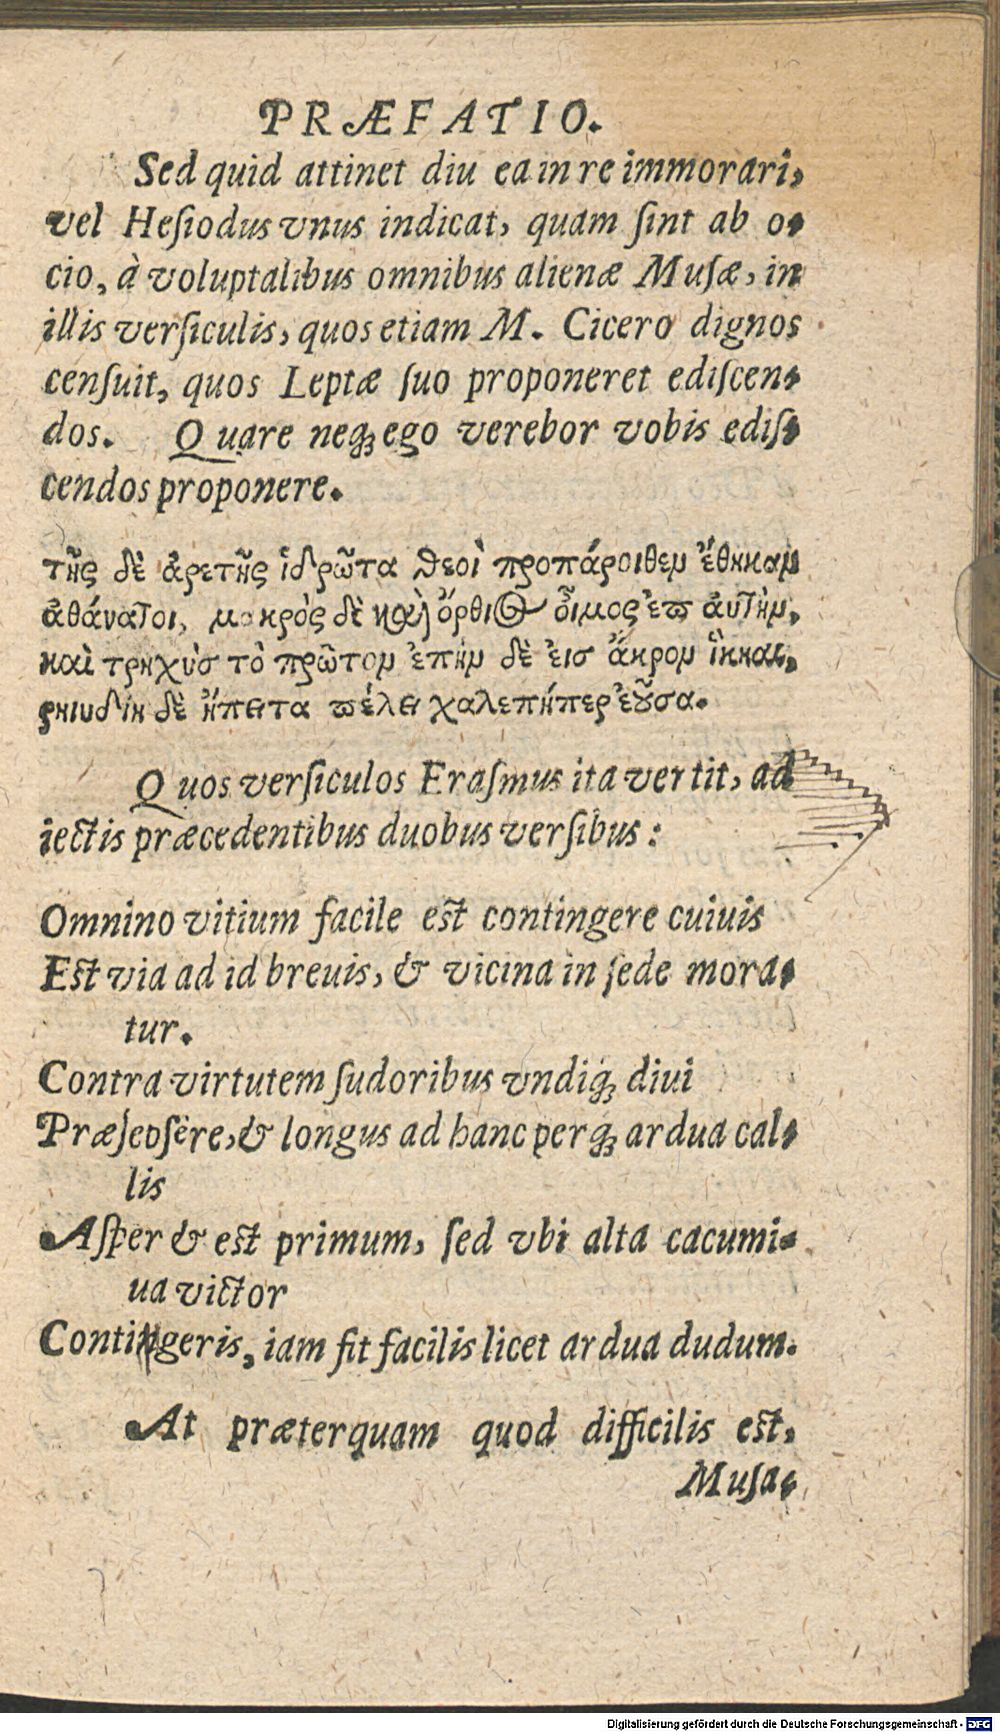 PRÆFATIO.
Sed quid attinet diu ea in re immorari,
vel Hesiodus vnus indicat, quam sint ab o-
cio, à voluptalibus omnibus alienæ Musæ, in
illis versiculis, quos etiam M. Cicero dignos
censuit, quos Leptæ suo proponeret ediscen-
dos. Quare neq; ego verebor vobis edis-
cendos proponere.
τῆς δὲ ἀρετῆς ἱδρῶτα θεοὶ προπάροιθεν ἔθηκαν
ἀθάνατοι, μακρὸς δὲ καὶ ὄρθιος οἶμος ἐπ αὐτὴν,
καὶ τρηχὺσ τὸ πρῶτον ἐπὴν δὲ εἰσ ἄκρον ἵκηαι,
ρηιυδίη δὲ ἤπειτα πέλει χαλεπήπερ ἐοῦσα.
Quos versiculos Erasmus ita vertit, ad
iectis præcedentibus duobus versibus:
Omnino vitium facile est contingere cuiuis
Est via ad id breuis, & vicina in sede mora-
tur.
Contra virtutem sudoribus vndiq; divi
Præsepsère, & longus ad hanc perq; ardua cal-
lis
Asper & est primum, sed vbi alta cacumi-
ua victor
Contingeris, iam fit facilis licet ardua dudum.
At præterquam quod difficilis est,
Musa-
Digitalisierung gefördert durch die Deutsche Forschungsgemeinschaft - DFG